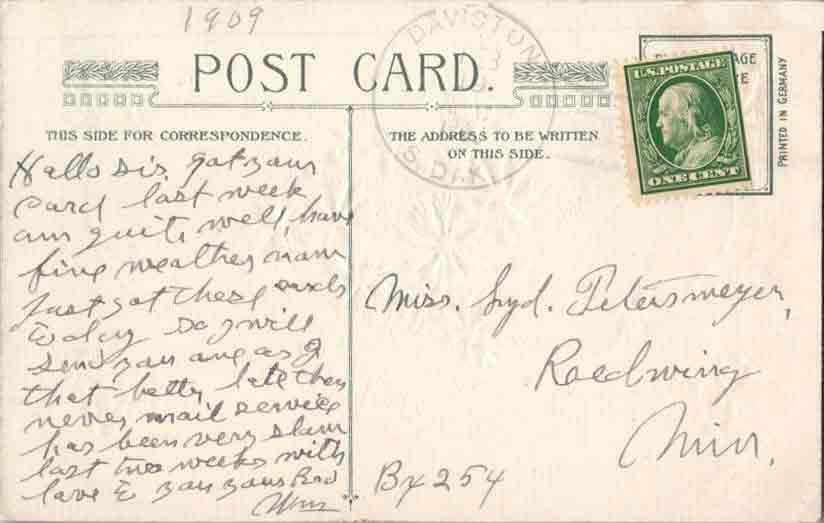 1909
DAVISTON
S. DAK.
POST CARD.
U.S. POSTAGE
ONE CENT
PRINTED IN GERMANY
THIS SIDE FOR CORRESPONDENCE.
THE ADDRESS TO BE WRITTEN
ON THIS SIDE.
Hallo Sis. got your
card last week
am quite well, have
fine weather now
just got these cards
to day so I will
send you one as
that better late then
never, mail service
has been very slow
last two weeks with
love to you yours Bro
Wm
Miss. Lyd. Petersmeyer,
Roedwing
Minn.
Bx 254